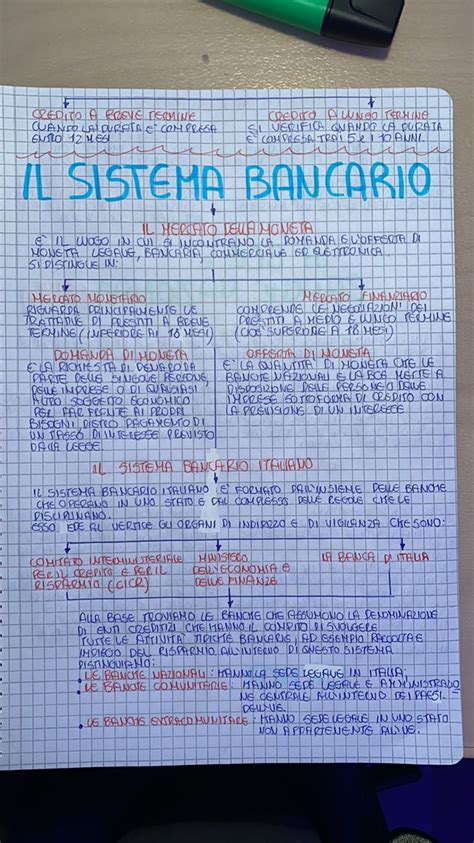 CREDITO A BREVE TERMINE
QUANDO LA DURATA E' COMPRESA
ENTRO 12 MESI
CREDITO A LUNGO TERMINE
SI VERIFICA QUANDO LA DURATA
E' COMPRESA TRA I 5 E I 10 ANNI.
IL SISTEMA BANCARIO
IL MERCATO DELLA MONETA
E' IL LUOGO IN CUI SI INCONTRANO LA DOMANDA E L'OFFERTA DI
MONETA LEGALE, BANCARIA, COMMERCIALE ED ELETTRONICA.
SI DISTINGUE IN:
MERCATO MONETARIO
RIGUARDA PRINCIPALMENTE LE
TRATTATIVE DI PRESTITI A BREVE
TERMINE (INFERIORE AI 18 MESI)
MERCATO FINANZIARIO
COMPRENDE LE NEGOZIAZIONI DEI
PRESTITI A MEDIO E LUNGO TERMINE
(CIOE' SUPERIORE A 18 MESI)
DOMANDA DI MONETA
E' LA RICHIESTA DI DENARO DA
PARTE DELLE SINGOLE PERSONE,
DELLE IMPRESE O DI QUALSIASI
ALTRO SOGGETTO ECONOMICO
PER FAR FRONTE AI PROPRI
BISOGNI, DIETRO PAGAMENTO DI
UN TASSO DI INTERESSE PREVISTO
DALLA LEGGE.
OFFERTA DI MONETA
E' LA QUANTITA' DI MONETA CHE LE
BANCHE NAZIONALI E LA BCE METTE A
DISPOSIZIONE DELLE PERSONE O DELLE
IMPRESE SOTTOFORMA DI CREDITO CON
LA PREVISIONE DI UN INTERESSE.
IL SISTEMA BANCARIO ITALIANO
IL SISTEMA BANCARIO ITALIANO E' FORMATO DALL'INSIEME DELLE BANCHE
CHE OPERANO IN UNO STATO E DAL COMPLESSO DELLE REGOLE CHE LE
DISCIPLINANO.
ESSO VEDE AL VERTICE GLI ORGANI DI INDIRIZZO E DI VIGILANZA CHE SONO:
COMITATO INTERMINISTERIALE
PER IL CREDITO E PER IL
RISPARMIO (CICR)
MINISTERO
DELL'ECONOMIA E
DELLE FINANZE
LA BANCA DI ITALIA
ALLA BASE TROVIAMO LE BANCHE CHE ASSUMONO LA DENOMINAZIONE
DI ENTI CREDITIZI CHE HANNO IL COMPITO DI SVOLGERE
TUTTE LE ATTIVITA' TIPICHE BANCARIE, AD ESEMPIO RACCOLTA E
IMPIEGO DEL RISPARMIO ALL'INTERNO DI QUESTO SISTEMA
DISTINGUIAMO:
• LE BANCHE NAZIONALI: HANNO LA SEDE LEGALE IN ITALIA;
• LE BANCHE COMUNITARIE: HANNO SEDE LEGALE E AMMINISTRAZIO
NE CENTRALE ALL'INTERNO DEI PAESI
DELL'UE.
• LE BANCHE EXTRACOMUNITARIE: HANNO SEDE LEGALE IN UNO STATO
NON APPARTENENTE ALL'UE.